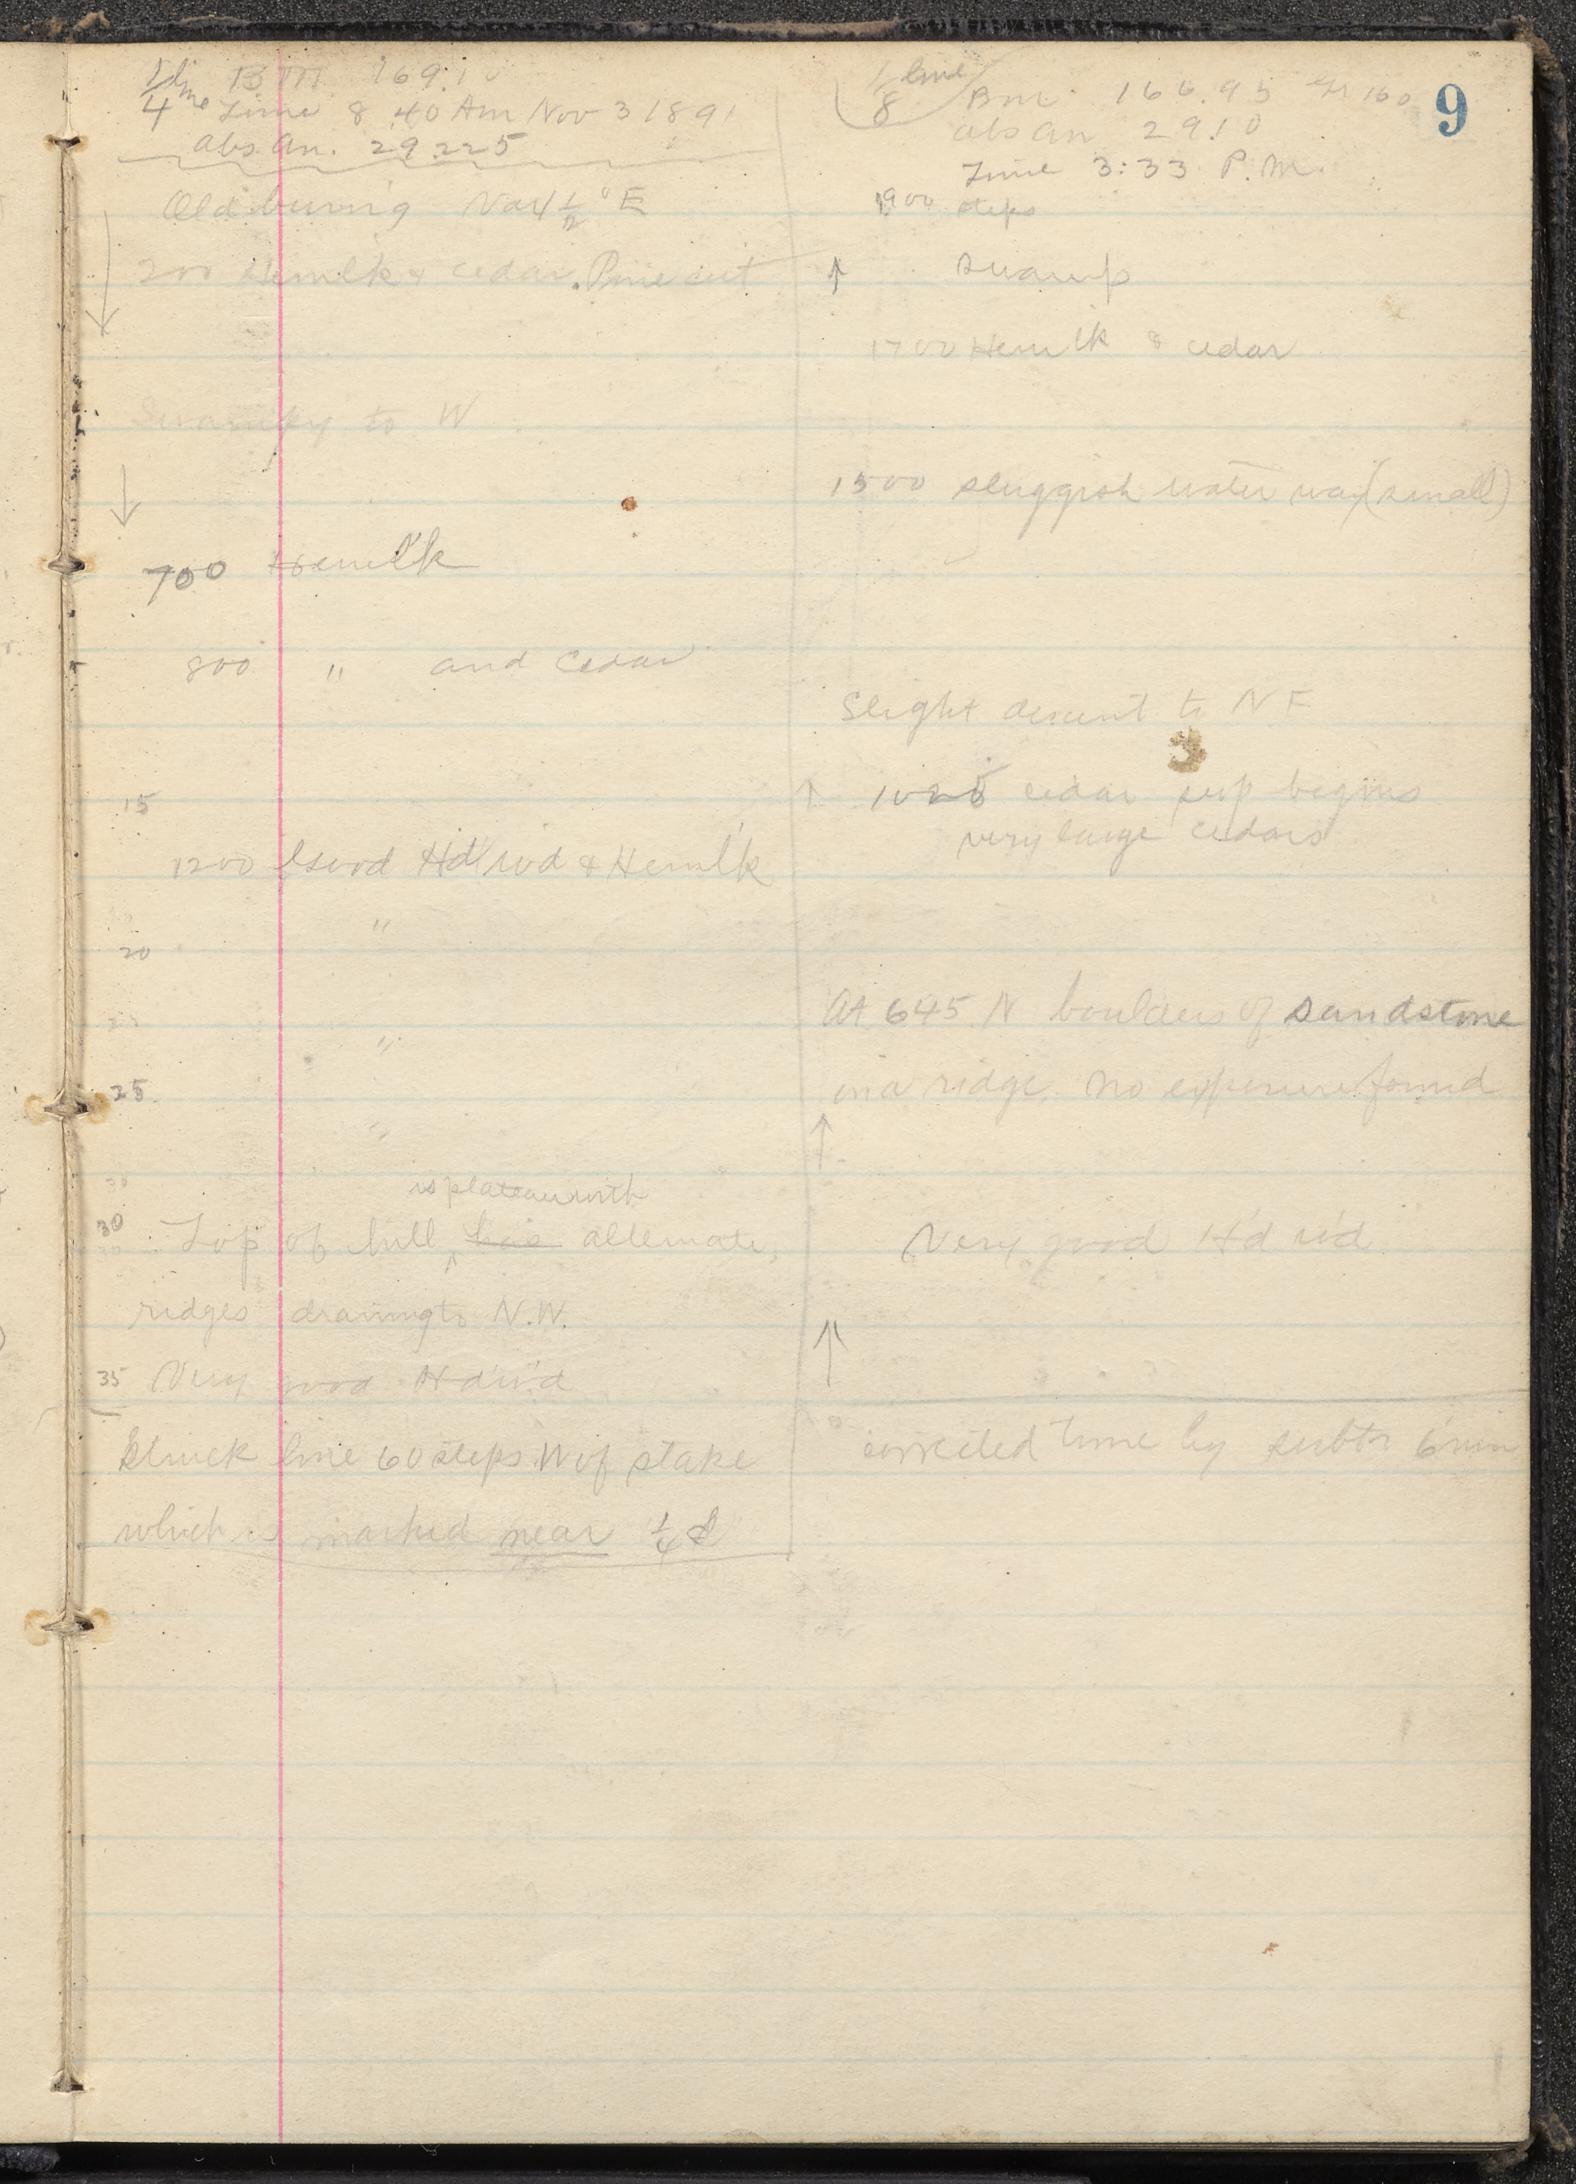 9
1/4 line BM 169.10
Time 8 40 Am Nov 3 1891
abs. An. 29.225
Old burning Var 4 1/2° E
200 Hemlk & cedar. Pine cut
Swampy to W
700 Hemlk
800 " and Cedar
15
1200 Good Hd'wd & Heml'k
"
20
"
25
"
is plateau with
30 Top of hill ^ has alternate
ridges draining to N.W.
35 Very good Hd'w'd
Struck line 60 steps W of stake
which is marked near 1/4 S
1/8 line
Bm. 166.95 160
abs An 29.10
Time 3:33 P.M.
1900 steps
↑ swamp
1700 Hemlk & cedar
1500 sluggish water way (small)
Slight descent to N E
↑ 1025 cedar swp begins
very large cedars
At 645 N boulders of sandstone
in a ridge. No exposure found
↑
Very good H'd w'd
↑
corrected time by subtr 6 min